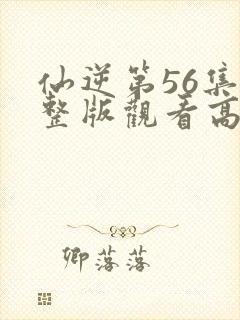 仙逆第56集
整版觀看高
卿落落